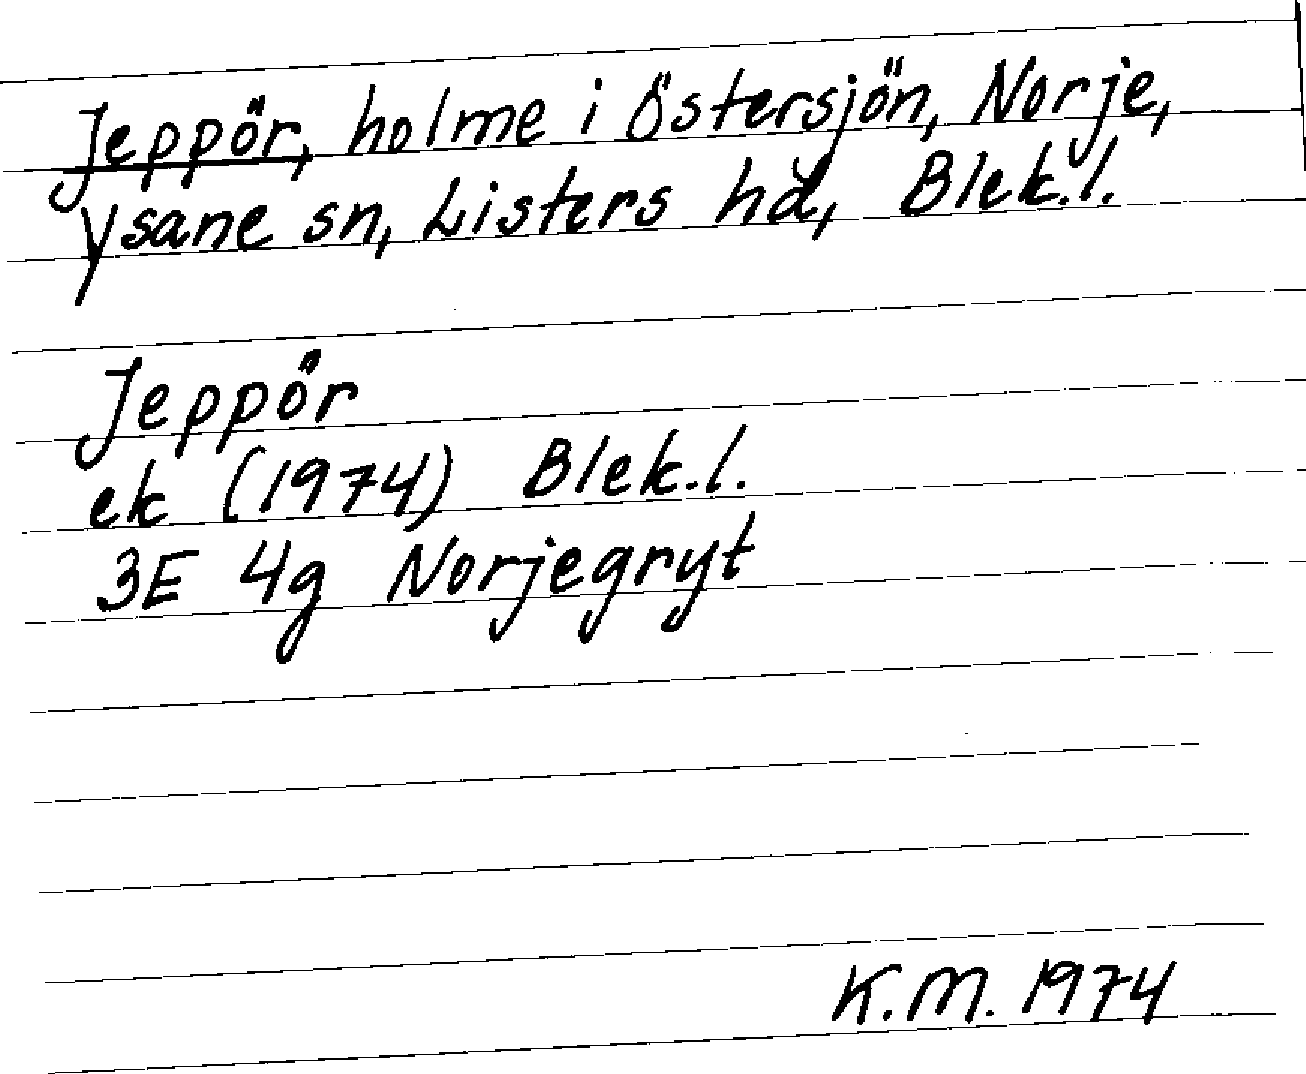 Jeppör, holme i Östersjön, Norje,
Ysane sn, Listers hd, Blek.l.
Jeppör
ek (1974) Blek.l.
3E 4g Norjegryt
K.M. 1974